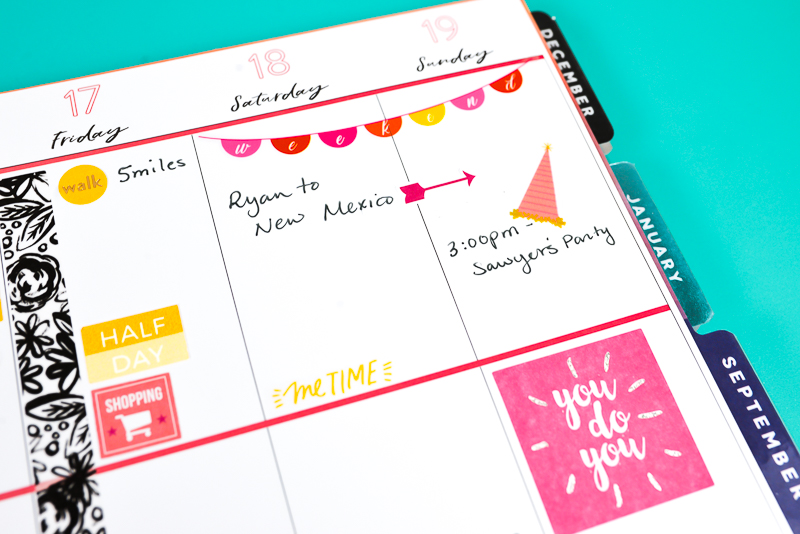 17
Friday
18
Saturday
19
Sunday
weekend
walk
5 miles
HALF
DAY
SHOPPING
Ryan to
New Mexico
me TIME
3:00pm -
Sawyer's Party
you
do
you
DECEMBER
JANUARY
SEPTEMBER